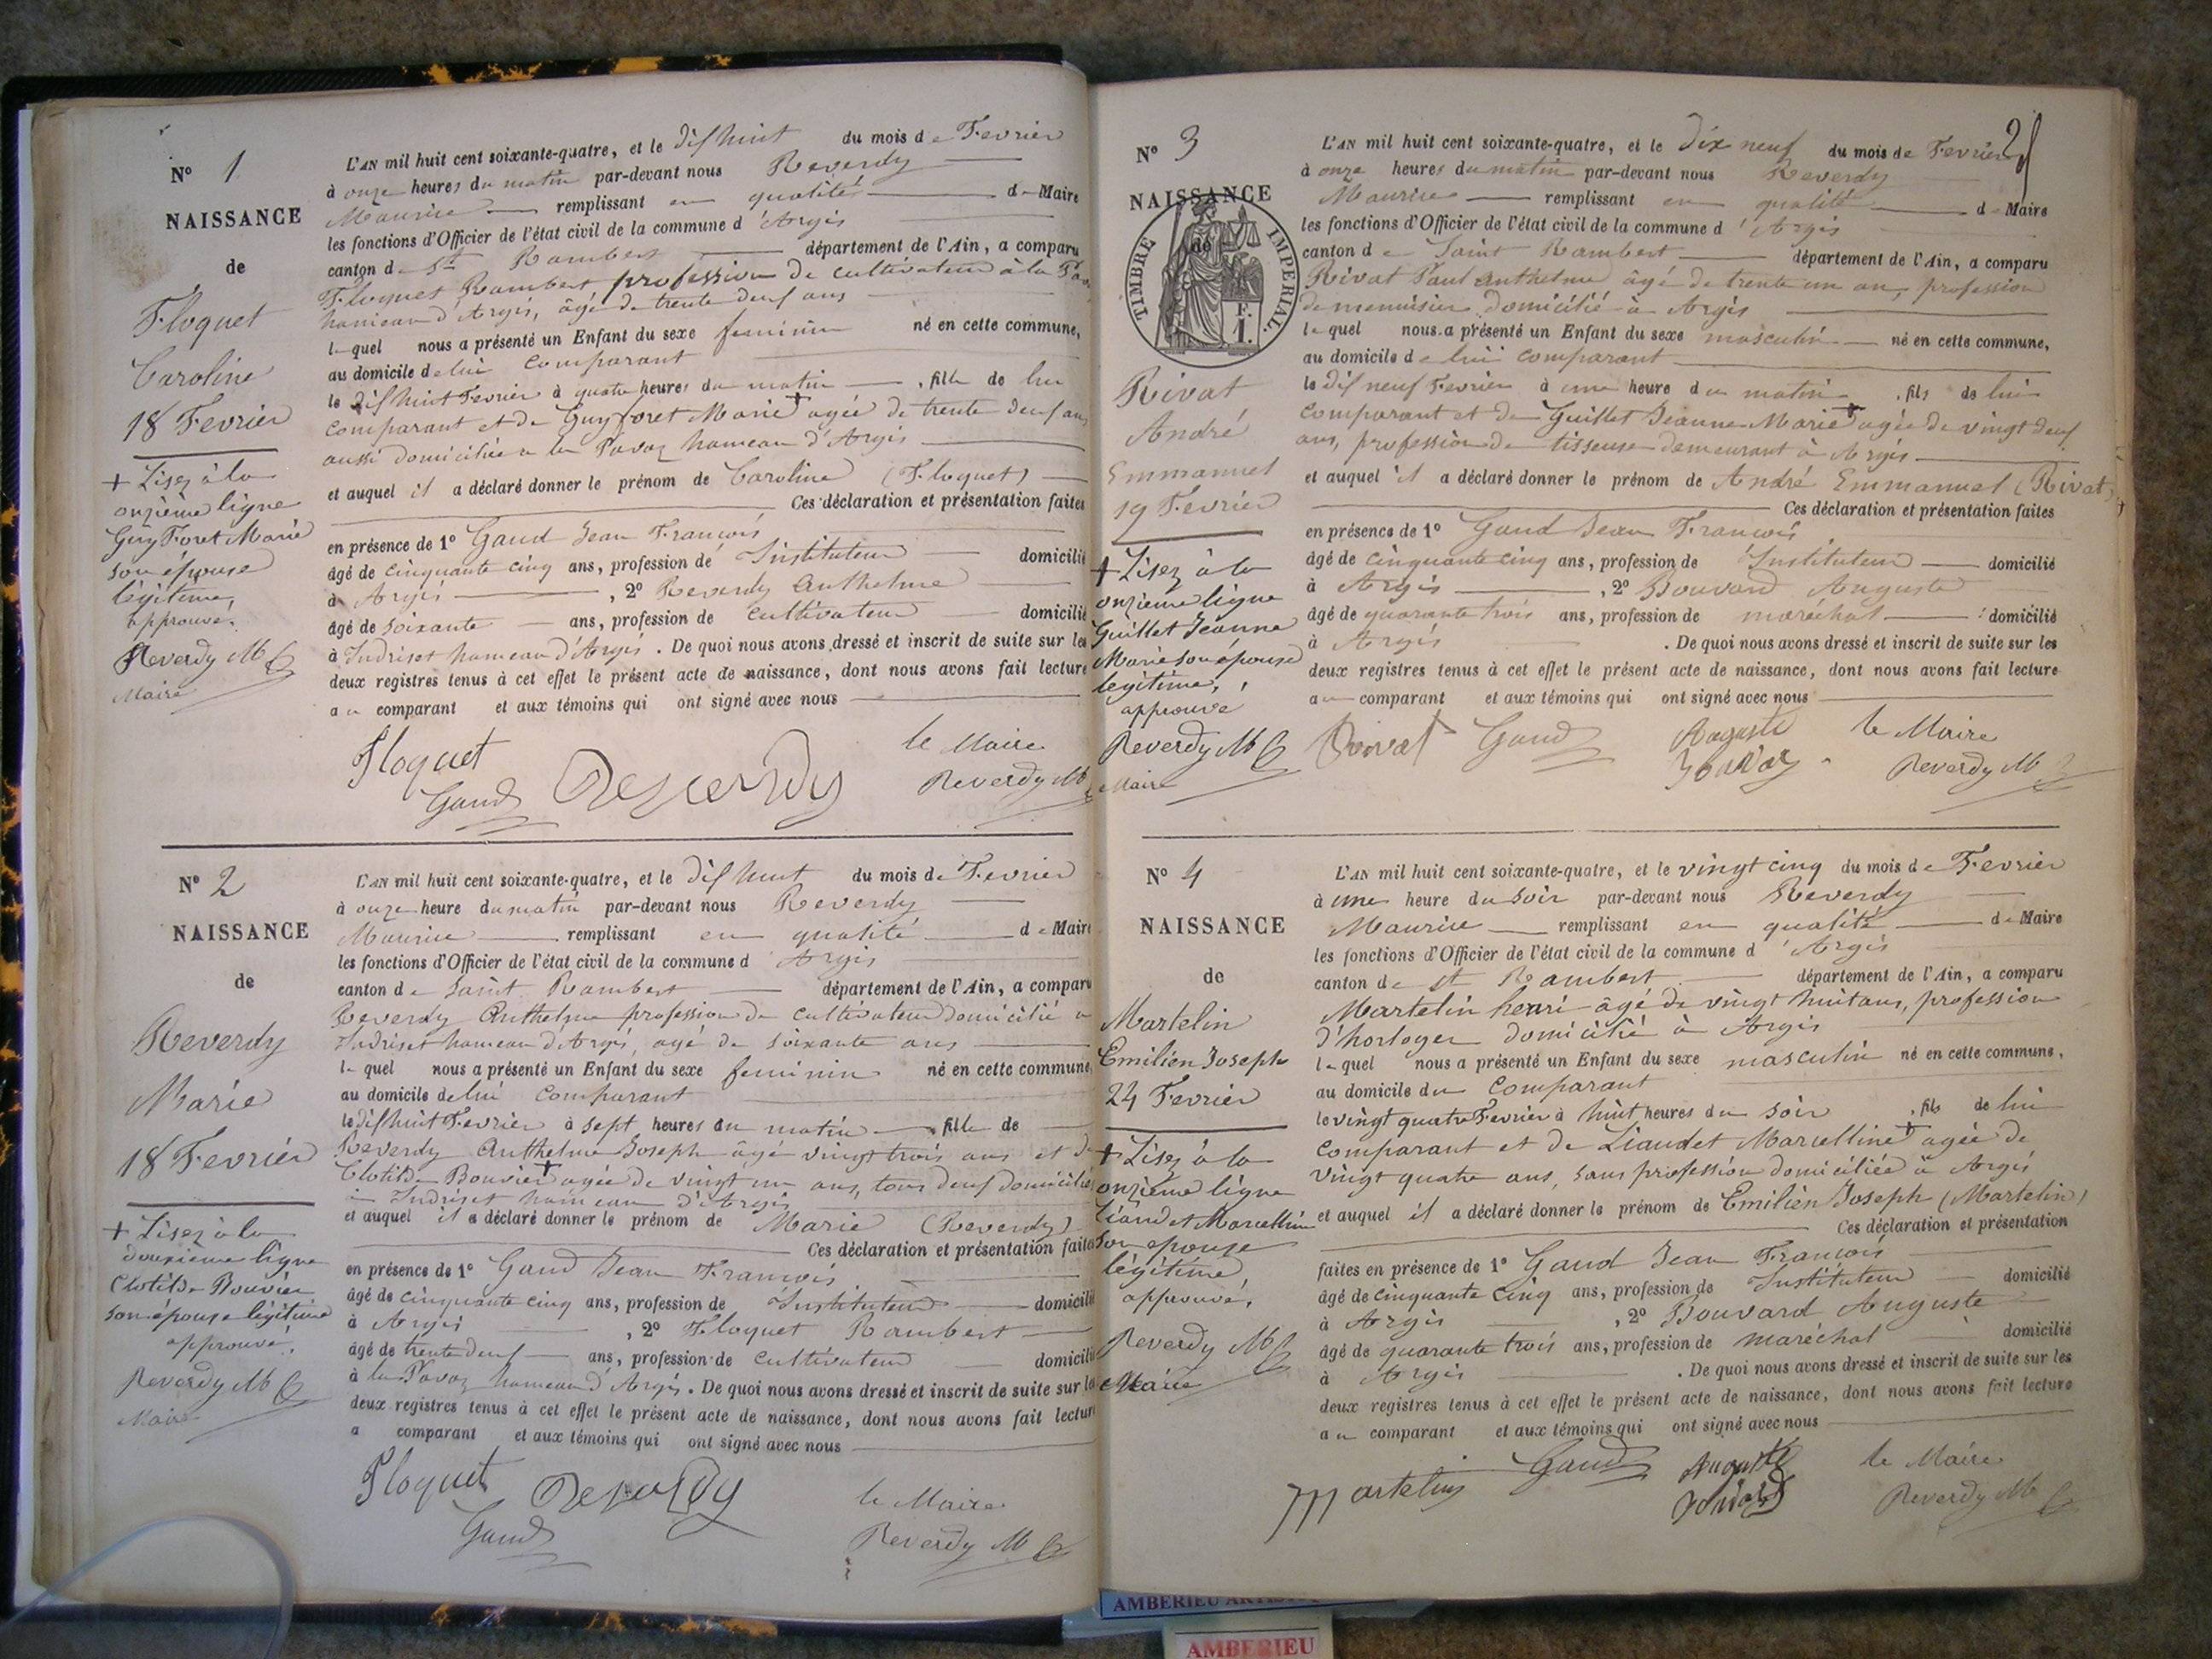 N° 1
NAISSANCE
de
Floquet
Caroline
18 Fevrier
+ Lisez à la
onzième ligne
Guy Foret Marie
son épouse
légitime,
approuvé.
Reverdy M
Maire
L'AN mil huit cent soixante-quatre, et le dishuit du mois de Fevrier
à onze heures du matin par-devant nous Reverdy
Maurice remplissant en qualité de Maire
les fonctions d'Officier de l'état civil de la commune d'Argis
canton de St Rambert département de l'Ain, a comparu
Floquet Rambert profession de cultivateur à la
hameau d'Argis, âgé de trente deux ans
lequel nous a présenté un Enfant du sexe feminin né en cette commune,
au domicile de lui comparant
le dishuit Fevrier à quatre heures du matin, fille de lui
comparant et de Guyforet Marie + agée de trente deux ans
aussi domiciliée à la Pavaz hameau d'Argis
et auquel il a déclaré donner le prénom de Caroline (Floquet)
Ces déclaration et présentation faites
en présence de 1° Gaud Jean François
âgé de cinquante cinq ans, profession de Instituteur domicilié
à Argis, 2° Reverdy Anthelme
âgé de soixante ans, profession de cultivateur domicilié
à Indriset hameau d'Argis. De quoi nous avons dressé et inscrit de suite sur les
deux registres tenus à cet effet le présent acte de naissance, dont nous avons fait lecture
au comparant et aux témoins qui ont signé avec nous
Floquet
Gaud Reverdy
le Maire
Reverdy M
N° 2
NAISSANCE
de
Reverdy
Marie
18 Fevrier
+ Lisez à la
douzième ligne
Clotilde Bouvier
son épouse légitime
approuvé.
Reverdy M
Maire
L'AN mil huit cent soixante-quatre, et le dishuit du mois de Fevrier
à onze heure du matin par-devant nous Reverdy
Maurice remplissant en qualité de Maire
les fonctions d'Officier de l'état civil de la commune d'Argis
canton de Saint Rambert département de l'Ain, a comparu
Reverdy Anthelme profession de cultivateur domicilié à
Indriset hameau d'Argis, agé de soixante ans
lequel nous a présenté un Enfant du sexe feminin né en cette commune
au domicile de lui comparant
le dishuit Fevrier à sept heures du matin, fille de
Reverdy Anthelme Joseph âgé vingt trois ans et de
Clotilde Bouvier + agée de vingt un ans, tous deux domiciliés
à Indriset hameau d'Argis
et auquel il a déclaré donner le prénom de Marie (Reverdy)
Ces déclaration et présentation faites
en présence de 1° Gaud Jean François
âgé de cinquante cinq ans, profession de Instituteur domicilié
à Argis, 2° Floquet Rambert
âgé de trente deux ans, profession de cultivateur domicilié
à la Pavaz hameau d'Argis. De quoi nous avons dressé et inscrit de suite sur les
deux registres tenus à cet effet le présent acte de naissance, dont nous avons fait lecture
a comparant et aux témoins qui ont signé avec nous
Floquet Reverdy
Gaud
le Maire
Reverdy M
25
N° 3
NAISSANCE
de
TIMBRE IMPERIAL
F.
1.
Rivat
André
Emmanuel
19 Fevrier
+ Lisez à la
onzième ligne
Guillet Jeanne
Marie son épouse
légitime,
approuvé
Reverdy M
Maire
L'AN mil huit cent soixante-quatre, et le dix neuf du mois de Fevrier
à onze heures du matin par-devant nous Reverdy
Maurice remplissant en qualité de Maire
les fonctions d'Officier de l'état civil de la commune d'Argis
canton de Saint Rambert département de l'Ain, a comparu
Rivat Paul Anthelme âgé de trente un an, profession
de menuisier domicilié à Argis
lequel nous a présenté un Enfant du sexe masculin né en cette commune,
au domicile de lui comparant
le dis neuf Fevrier à une heure du matin, fils de lui
comparant et de Guillet Jeanne Marie + agée de vingt deux
ans, profession de tisseuse demeurant à Argis
et auquel il a déclaré donner le prénom de André Emmanuel (Rivat)
Ces déclaration et présentation faites
en présence de 1° Gaud Jean François
âgé de cinquante cinq ans, profession de Instituteur domicilié
à Argis, 2° Bouvard Auguste
âgé de quarante trois ans, profession de maréchal domicilié
à Argis. De quoi nous avons dressé et inscrit de suite sur les
deux registres tenus à cet effet le présent acte de naissance, dont nous avons fait lecture
au comparant et aux témoins qui ont signé avec nous
Rivat Gaud Auguste le Maire
Reverdy M
N° 4
NAISSANCE
de
Martelin
Emilien Joseph
24 Fevrier
+ Lisez à la
onzième ligne
Liaudet Marcelline
son épouse
légitime,
approuvé,
Reverdy M
Maire
L'AN mil huit cent soixante-quatre, et le vingt cinq du mois de Fevrier
à une heure du soir par-devant nous Reverdy
Maurice remplissant en qualité de Maire
les fonctions d'Officier de l'état civil de la commune d'Argis
canton de St Rambert département de l'Ain, a comparu
Martelin henri âgé de vingt huit ans, profession
d'horloger domicilié à Argis
lequel nous a présenté un Enfant du sexe masculin né en cette commune,
au domicile du comparant
le vingt quatre Fevrier à huit heures du soir, fils de lui
comparant et de Liaudet Marcelline + agée de
vingt quatre ans, sans profession domiciliée à Argis
et auquel il a déclaré donner le prénom de Emilien Joseph (Martelin)
Ces déclaration et présentation
faites en présence de 1° Gaud Jean François
âgé de cinquante cinq ans, profession de Instituteur domicilié
à Argis, 2° Bouvard Auguste
âgé de quarante trois ans, profession de maréchal domicilié
à Argis. De quoi nous avons dressé et inscrit de suite sur les
deux registres tenus à cet effet le présent acte de naissance, dont nous avons fait lecture
au comparant et aux témoins qui ont signé avec nous
Martelin Gaud Auguste le Maire
Reverdy M
AMBERIEU
AMBERIEU